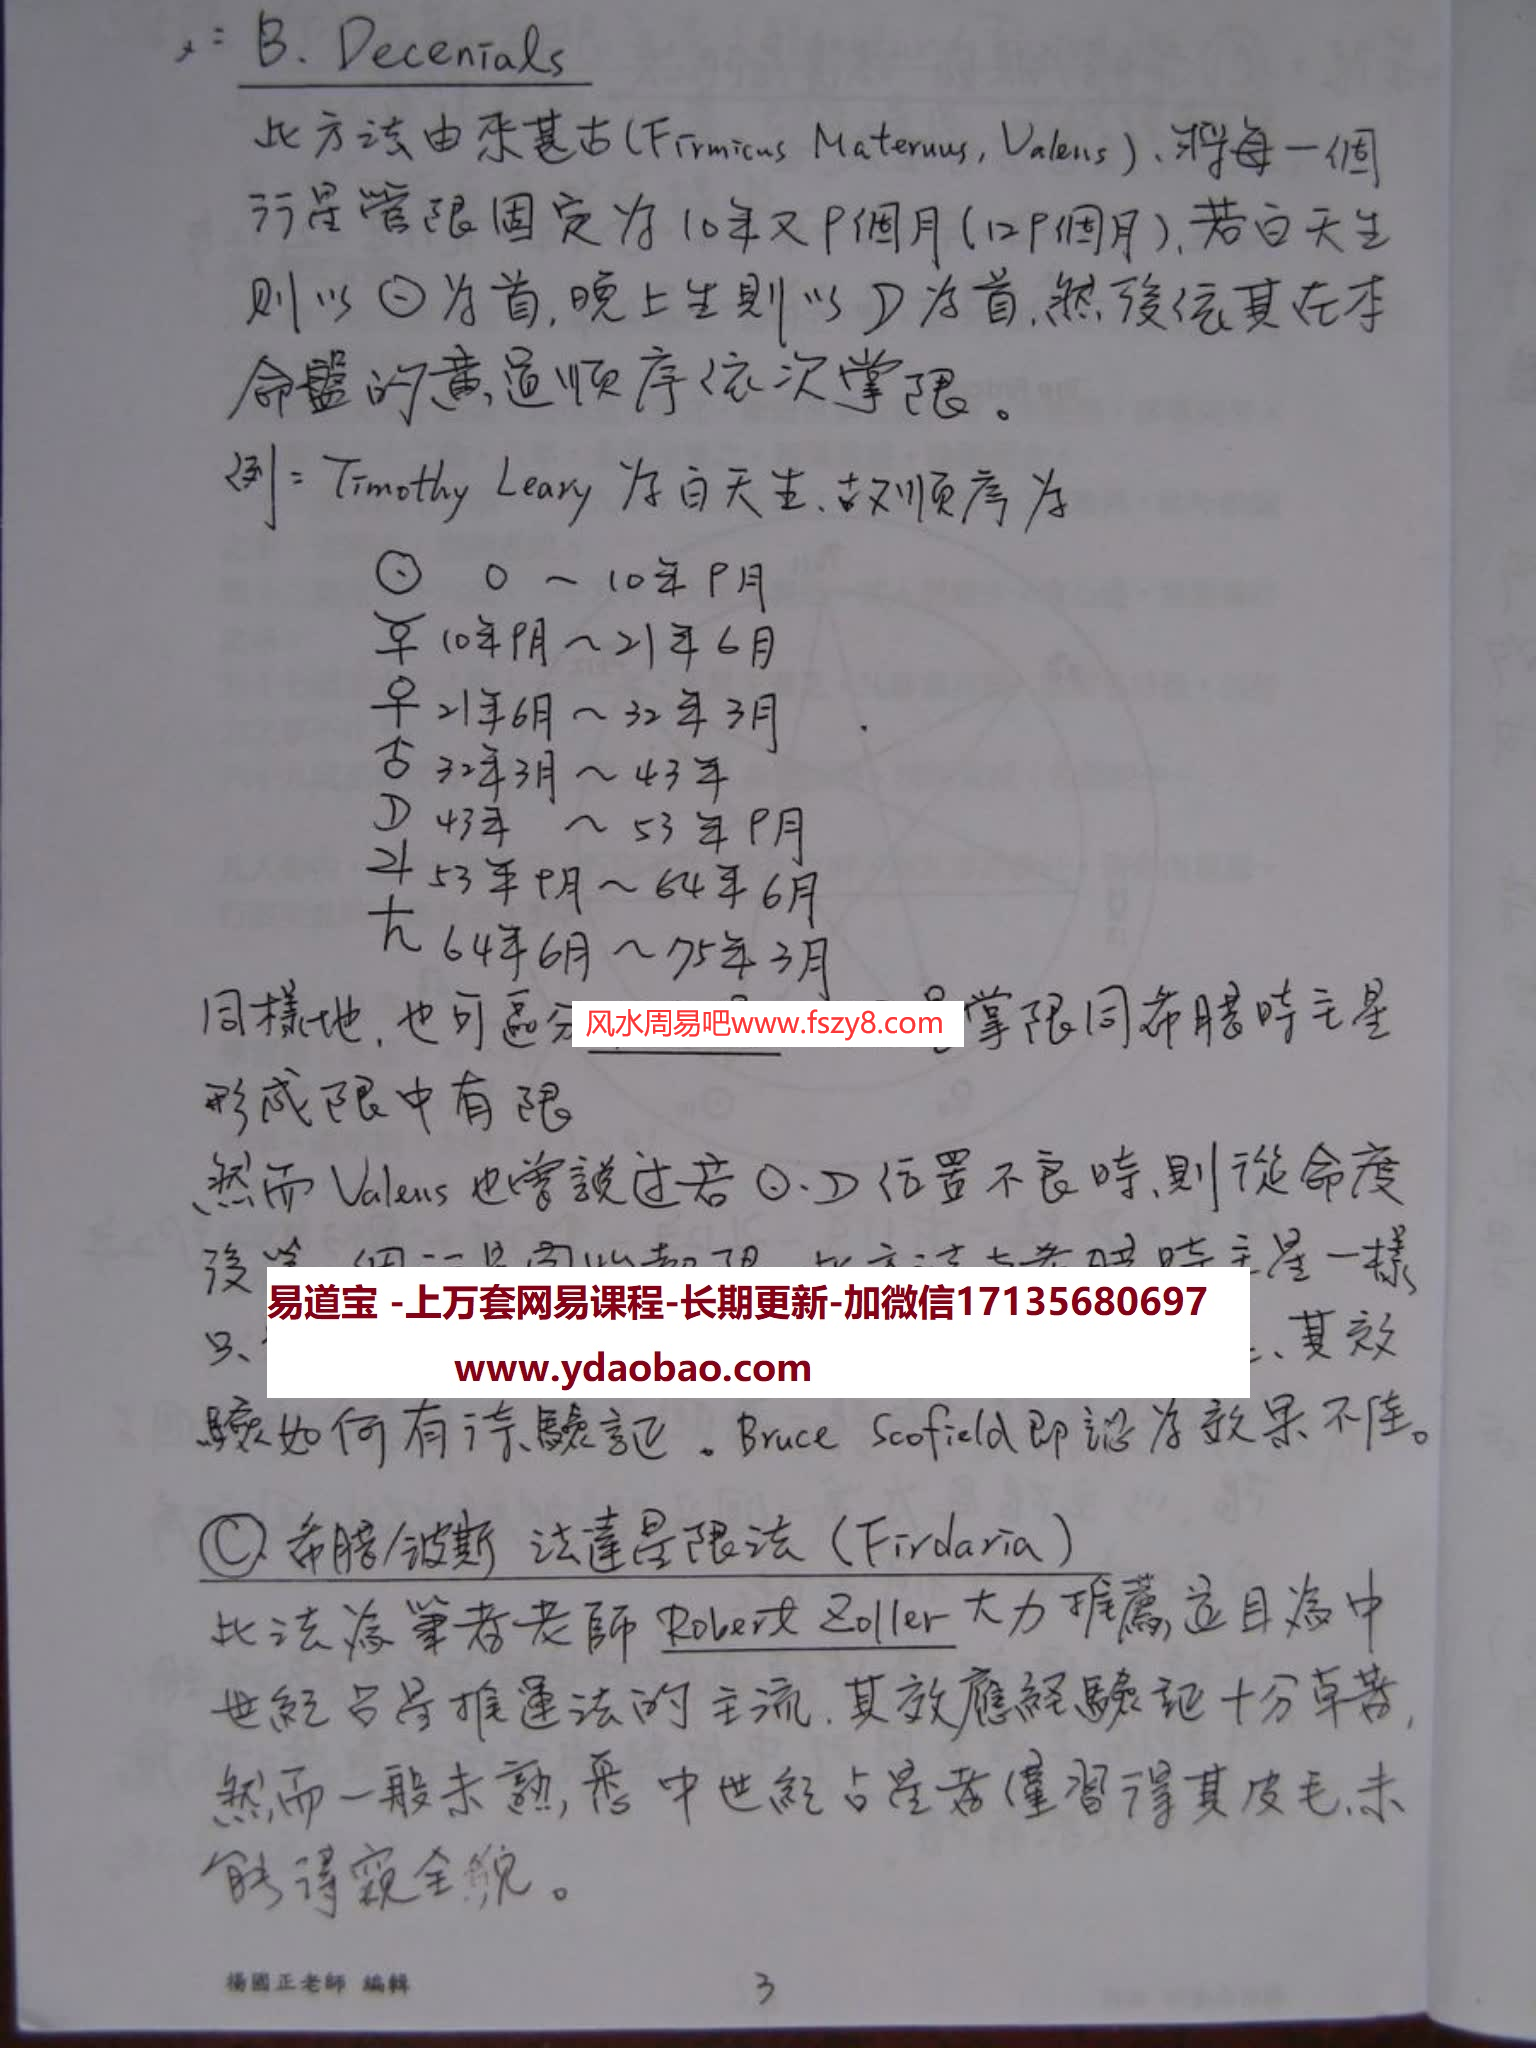 B. Decenials
此方法由來甚古(Firmicus Maternus, Valens)、將每一個
行星管限固定为10年又9個月(129個月)、若白天生
則以☉为首,晚上生則以☽为首,然後依其在本
命盤的黃道順序依次掌限。
例: Timothy Leary 为白天生、故順序为
☉ 0 ~ 10年9月
☿ 10年9月~21年6月
♀ 21年6月~32年3月
♂ 32年3月~43年
☽ 43年 ~ 53年9月
♃ 53年9月~64年6月
♄ 64年6月~75年3月
同樣地,也可區分 掌限同希臘時主星
风水周易吧www.fszy8.com
形成限中有限
然而Valens也曾說过若☉、☽位置不良時、則從命度
後第一個行星開始起限、此方法与希臘時主星一樣
易道宝 -上万套网易课程-长期更新-加微信17135680697
www.ydaobao.com
其效
驗如何有待驗証。Bruce Scofield即認为效果不佳。
C. 希臘/波斯 法達星限法 (Firdaria)
此法為筆者老師Robert Zoller大力推薦,並且為中
世紀占星推運法的主流、其效應経驗証十分卓著,
然而一般未熟悉中世紀占星者僅習得其皮毛、未
能得窺全貌。
楊國正老師 編輯
3